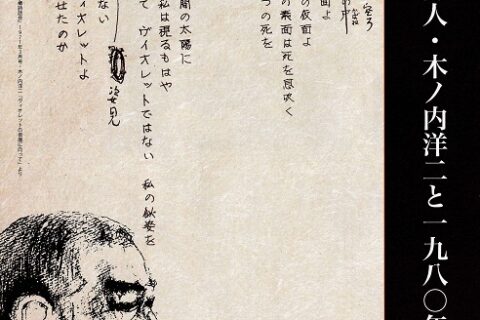 人・木ノ内洋二と一九八〇年
面よ
の仮面よ
の素面は死を息吹く
つの死を
闇の太陽に
私は現るもはや
て ヴィオレットではない 私の似姿を
姿見
ない
ィオレットよ
せたのか